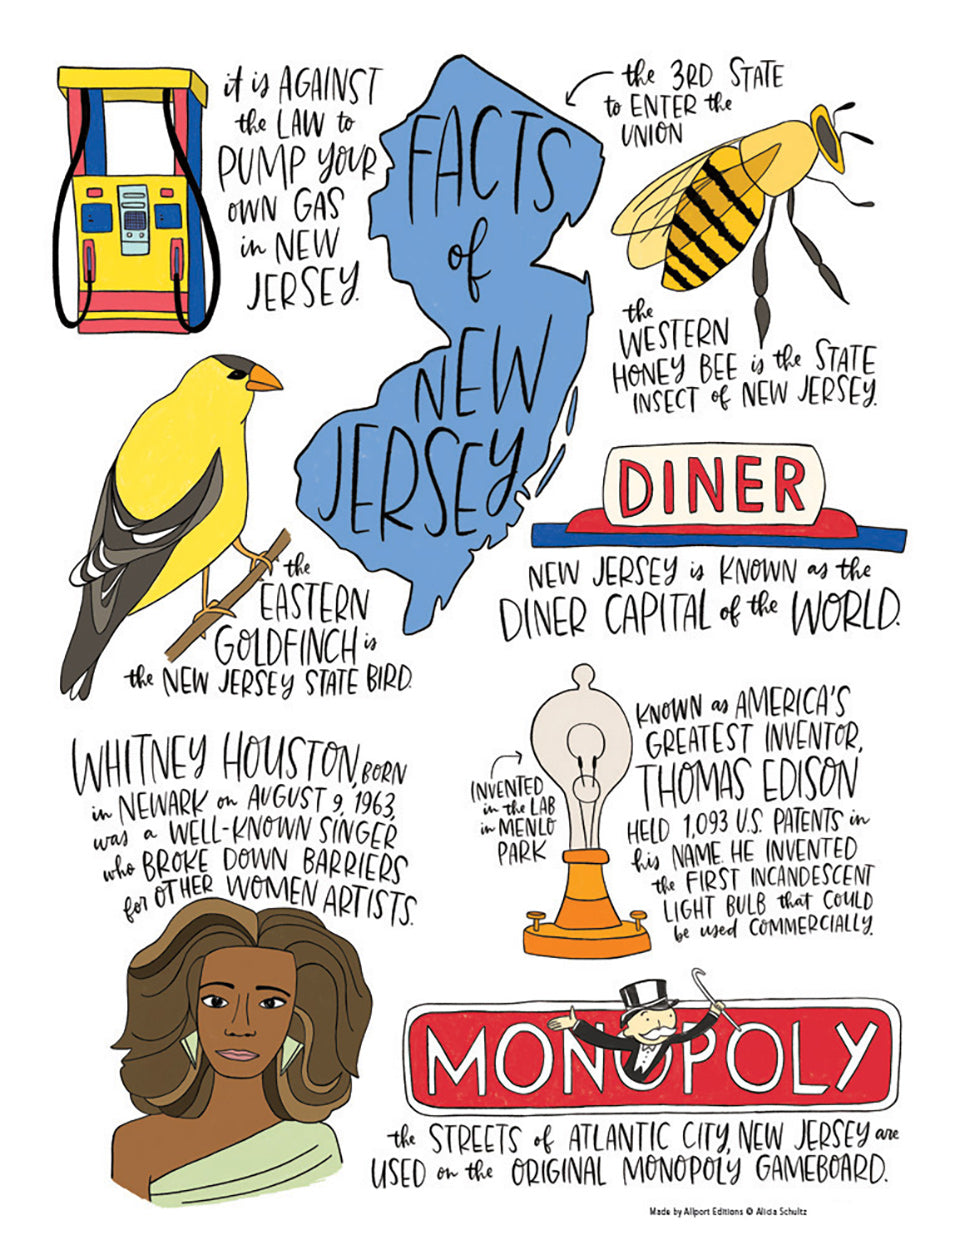 it is AGAINST
the LAW to
PUMP YOUR
OWN GAS
in NEW
JERSEY.
FACTS
of
NEW
JERSEY
the 3RD STATE
to ENTER the
UNION
the
WESTERN
HONEY BEE is the STATE
INSECT of NEW JERSEY.
DINER
NEW JERSEY is KNOWN as the
DINER CAPITAL of the WORLD.
the
EASTERN
GOLDFINCH is
the NEW JERSEY STATE BIRD.
WHITNEY HOUSTON, BORN
in NEWARK on AUGUST 9, 1963,
was a WELL-KNOWN SINGER
who BROKE DOWN BARRIERS
for OTHER WOMEN ARTISTS.
INVENTED
in the LAB
in MENLO
PARK
KNOWN as AMERICA'S
GREATEST INVENTOR,
THOMAS EDISON
HELD 1,093 U.S. PATENTS in
his NAME. HE INVENTED
the FIRST INCANDESCENT
LIGHT BULB that COULD
be used COMMERCIALLY.
MONOPOLY
the STREETS of ATLANTIC CITY, NEW JERSEY are
USED on the ORIGINAL MONOPOLY GAMEBOARD.
Made by Allport Editions © Alicia Schultz